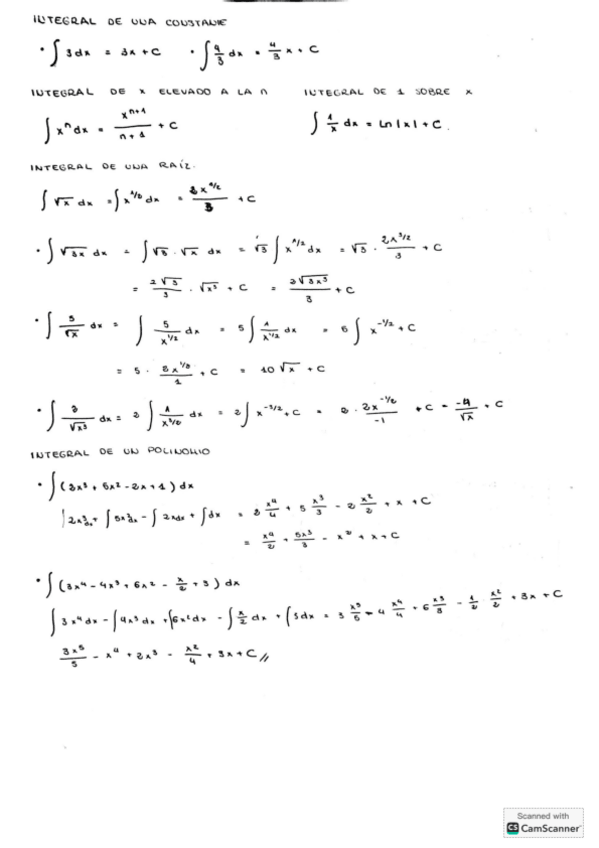 INTEGRAL DE UNA CONSTANTE
• ∫ 3dx = 3x + C • ∫ 4/3 dx = 4/3 x + C
INTEGRAL DE x ELEVADO A LA n INTEGRAL DE 1 SOBRE x
∫ xⁿ dx = xⁿ⁺¹/(n+1) + C ∫ 1/x dx = Ln|x| + C.
INTEGRAL DE UNA RAÍZ.
∫ √x dx = ∫ x^(1/2) dx = + C
• ∫ √3x dx = ∫ √3 · √x dx = √3 ∫ x^(1/2) dx = √3 · 2x^(3/2)/3 + C
= 2√3/3 · √x³ + C = 2√3x³/3 + C
• ∫ 5/√x dx = ∫ 5/x^(1/2) dx = 5 ∫ 1/x^(1/2) dx = 5 ∫ x^(-1/2) + C
= 5 · 2x^(1/2)/1 + C = 10 √x + C
• ∫ 2/√x³ dx = 2 ∫ 1/x^(3/2) dx = 2 ∫ x^(-3/2) + C = 2 · 2x^(-1/2)/-1 + C = -4/√x + C
INTEGRAL DE UN POLINOMIO
• ∫ (2x³ + 5x² - 2x + 1) dx
∫ 2x³dx + ∫ 5x²dx - ∫ 2xdx + ∫ dx = 2 x⁴/4 + 5 x³/3 - 2 x²/2 + x + C
= x⁴/2 + 5x³/3 - x² + x + C
• ∫ (3x⁴ - 4x³ + 6x² - x/2 + 3) dx
∫ 3x⁴ dx - ∫ 4x³ dx + ∫ 6x² dx - ∫ x/2 dx + ∫ 3dx = 3 x⁵/5 - 4 x⁴/4 + 6 x³/3 - 1/2 · x²/2 + 3x + C
3x⁵/5 - x⁴ + 2x³ - x²/4 + 3x + C //
Scanned with
CS CamScanner